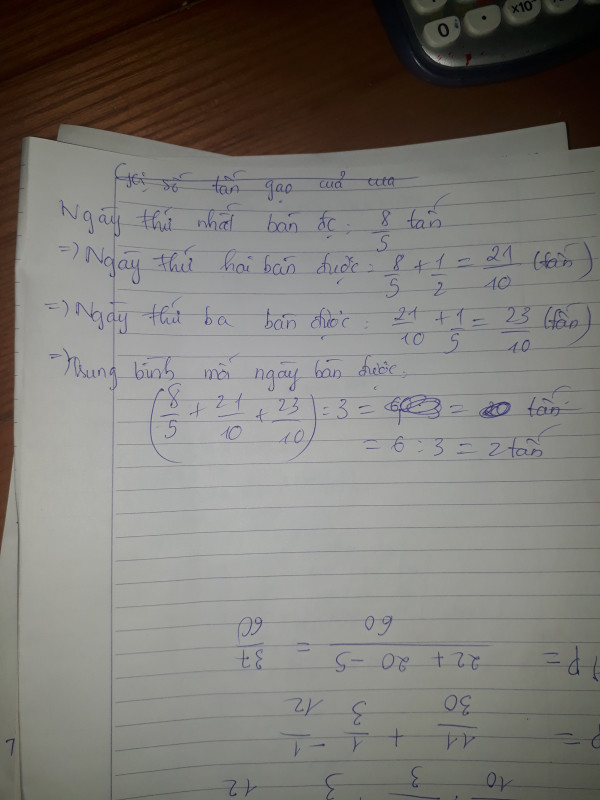 Gọi số tấn gạo cuả cưa
Ngày thứ nhất bán đc: 8/5 tấn
=> Ngày thứ hai bán được: 8/5 + 1/2 = 21/10 (tấn)
=> Ngày thứ ba bán được: 21/10 + 1/5 = 23/10 (tấn)
=> Trung bình mỗi ngày bán được:
(8/5 + 21/10 + 23/10) : 3 = = tấn
= 6 : 3 = 2 tấn
10 3 3 12
P = 11/30 + 1/3 - 1/12
P = (22 + 20 - 5)/60 = 37/60
0 . ×10ˣ